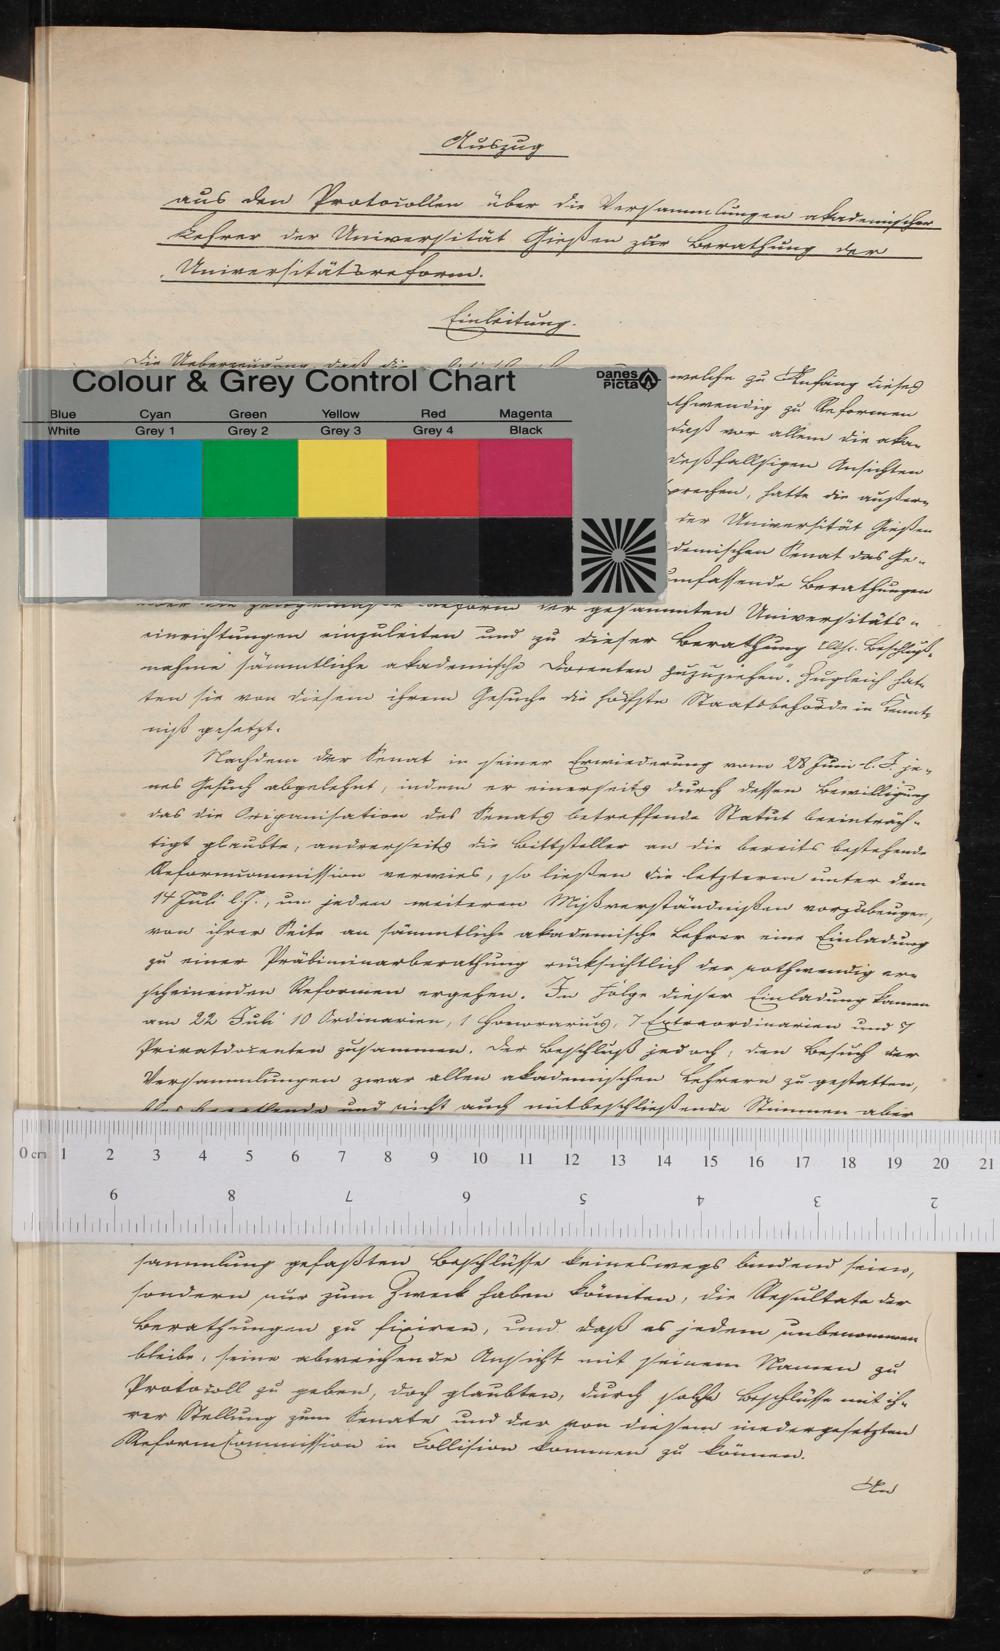 Auszug
aus den Protocollen über die Versammlungen akademischer
Lehrer der Universität Gießen zur Berathung der
Universitätsreform.
Einleitung.
Die Ueberzeugung daß die
welche zu Anfang dieses
thwendig zu Reformen
daß vor allem die aka-
deßfallsigen Ansichten
prechen, hatte die außer-
der Universität Gießen
demischen Senat das Ge-
umfassende Berathungen
Colour & Grey Control Chart
Danes Picta
Blue Cyan Green Yellow Red Magenta
White Grey 1 Grey 2 Grey 3 Grey 4 Black
über die zeitgemäße Reform der gesammten Universitäts-
einrichtungen einzuleiten und zu dieser Berathung Beschluß-
nahme sämmtliche akademische Docenten zuzuziehen. Zugleich hat-
ten sie von diesem ihrem Gesuche die höchste Staatsbehörde in Kennt-
niß gesetzt.
Nachdem der Senat in seiner Erwiederung vom 28 Juni l. J. je-
nes Gesuch abgelehnt, indem er einerseits durch dessen Bewilligung
das die Organisation des Senats betreffende Statut beeinträch-
tigt glaubte, andrerseits die Bittsteller an die bereits bestehende
Reformcommission verwies, so ließen die letzteren unter dem
14 Juli l. J., um jeden weiteren Mißverständnißen vorzubeugen,
von ihrer Seite an sämmtliche akademische Lehrer eine Einladung
zu einer Präliminarberathung rücksichtlich der nothwendig er-
scheinenden Reformen ergehen. In Folge dieser Einladung kamen
am 22 Juli 10 Ordinarien, 1 Honorarius, 7 Extraordinarien und 7
Privatdocenten zusammen. Der Beschluß jedoch, den Besuch der
Versammlungen zwar allen akademischen Lehrern zu gestatten,
und nicht auch mitbeschließende Stimmen aber
0 cm 1 2 3 4 5 6 7 8 9 10 11 12 13 14 15 16 17 18 19 20 21
9 8 7 6 5 4 3 2
sammlung gefaßten Beschlüsse keineswegs bindend seien,
sondern nur zum Zweck haben könnten, die Resultate der
Berathungen zu fixiren, und daß es jedem unbenommen
bleibe, seine abweichende Ansicht mit seinem Namen zu
Protocoll zu geben, doch glaubten, durch solche Beschlüsse mit ih-
rer Stellung zum Senate und der von diesem niedergesetzten
Reformcommission in Collision kommen zu können.
An